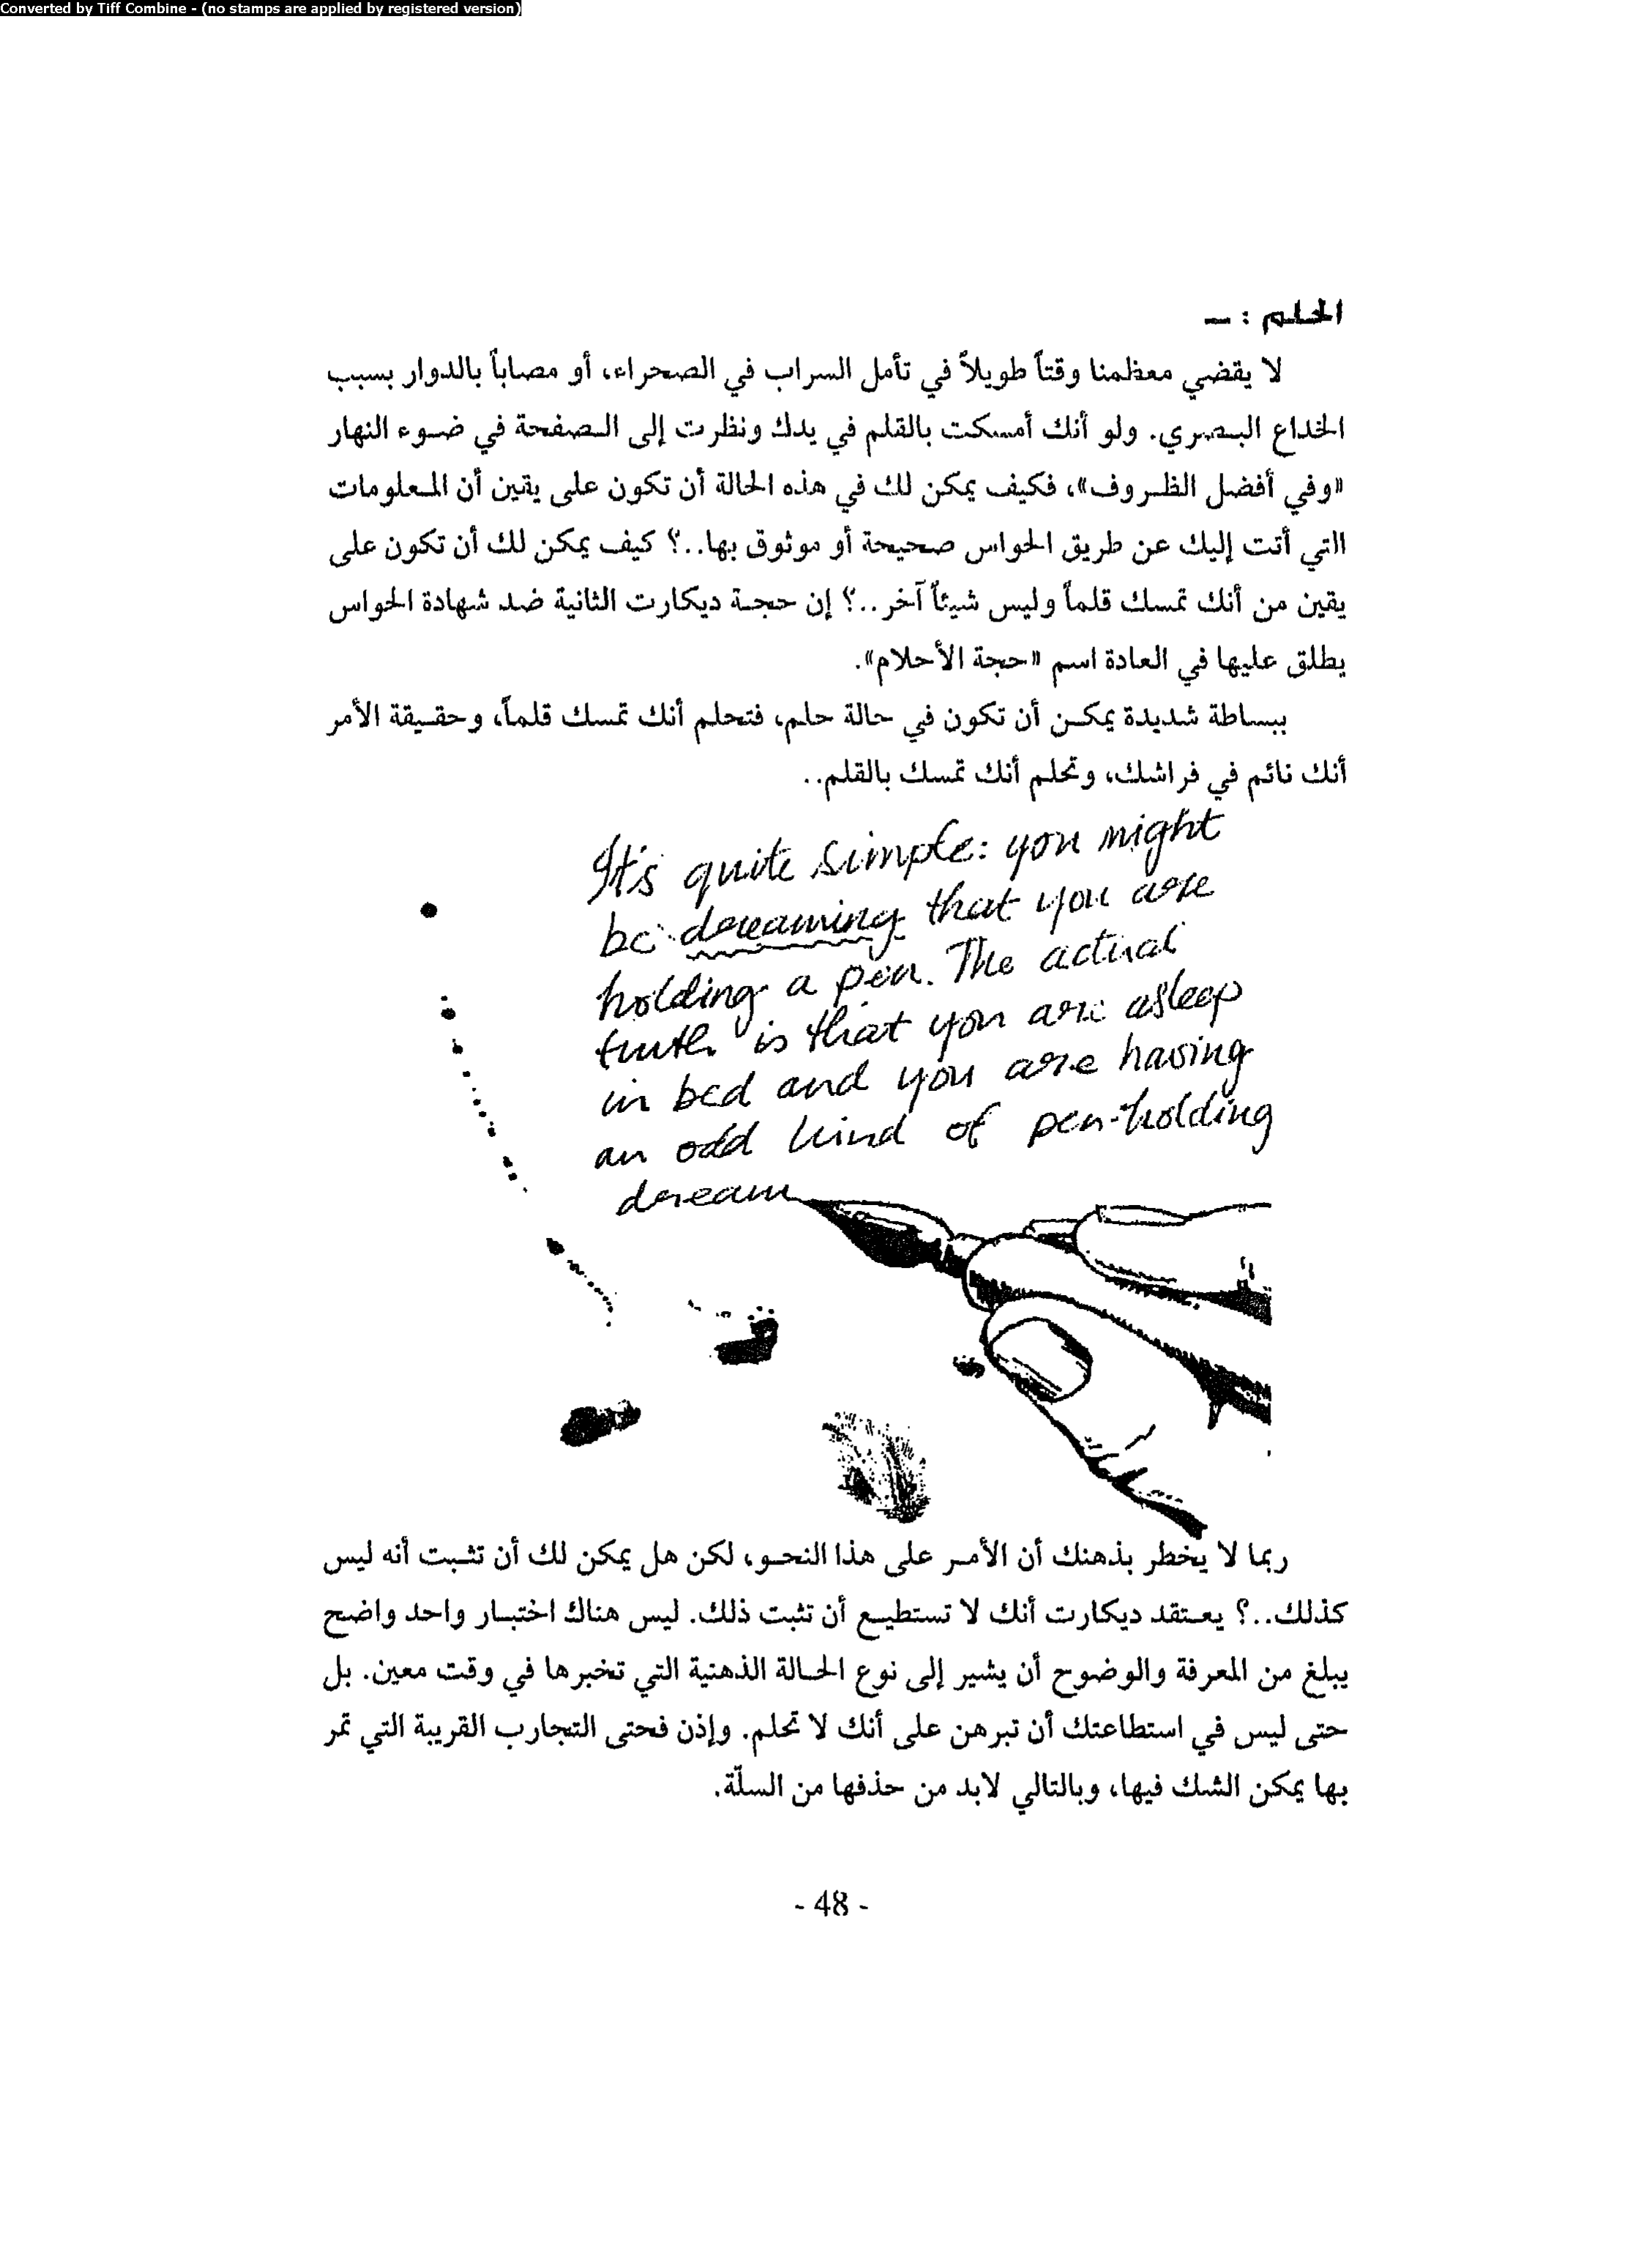 Converted by Tiff Combine - (no stamps are applied by registered version)
الحلم : –
لا يقضي معظمنا وقتاً طويلاً في تأمل السراب في الصحراء، أو مصاباً بالدوار بسبب
الخداع البصري. ولو أنك أمسكت بالقلم في يدك ونظرت إلى الصفحة في ضوء النهار
«وفي أفضل الظروف»، فكيف يمكن لك في هذه الحالة أن تكون على يقين أن المعلومات
التي أتت إليك عن طريق الحواس صحيحة أو موثوق بها..؟ كيف يمكن لك أن تكون على
يقين من أنك تمسك قلماً وليس شيئاً آخر..؟ إن حجة ديكارت الثانية ضد شهادة الحواس
يطلق عليها في العادة اسم «حجة الأحلام».
ببساطة شديدة يمكن أن تكون في حالة حلم، فتحلم أنك تمسك قلماً، وحقيقة الأمر
أنك نائم في فراشك، وتحلم أنك تمسك بالقلم..
It's quite simple: you might
be dreaming that you are
holding a pen. The actual
truth is that you are asleep
in bed and you are having
an odd kind of pen-holding
dream
ربما لا يخطر بذهنك أن الأمر على هذا النحو، لكن هل يمكن لك أن تثبت أنه ليس
كذلك..؟ يعتقد ديكارت أنك لا تستطيع أن تثبت ذلك. ليس هناك اختبار واحد واضح
يبلغ من المعرفة والوضوح أن يشير إلى نوع الحالة الذهنية التي تخبرها في وقت معين. بل
حتى ليس في استطاعتك أن تبرهن على أنك لا تحلم. وإذن فحتى التجارب القريبة التي تمر
بها يمكن الشك فيها، وبالتالي لابد من حذفها من السلّة.
- 48 -